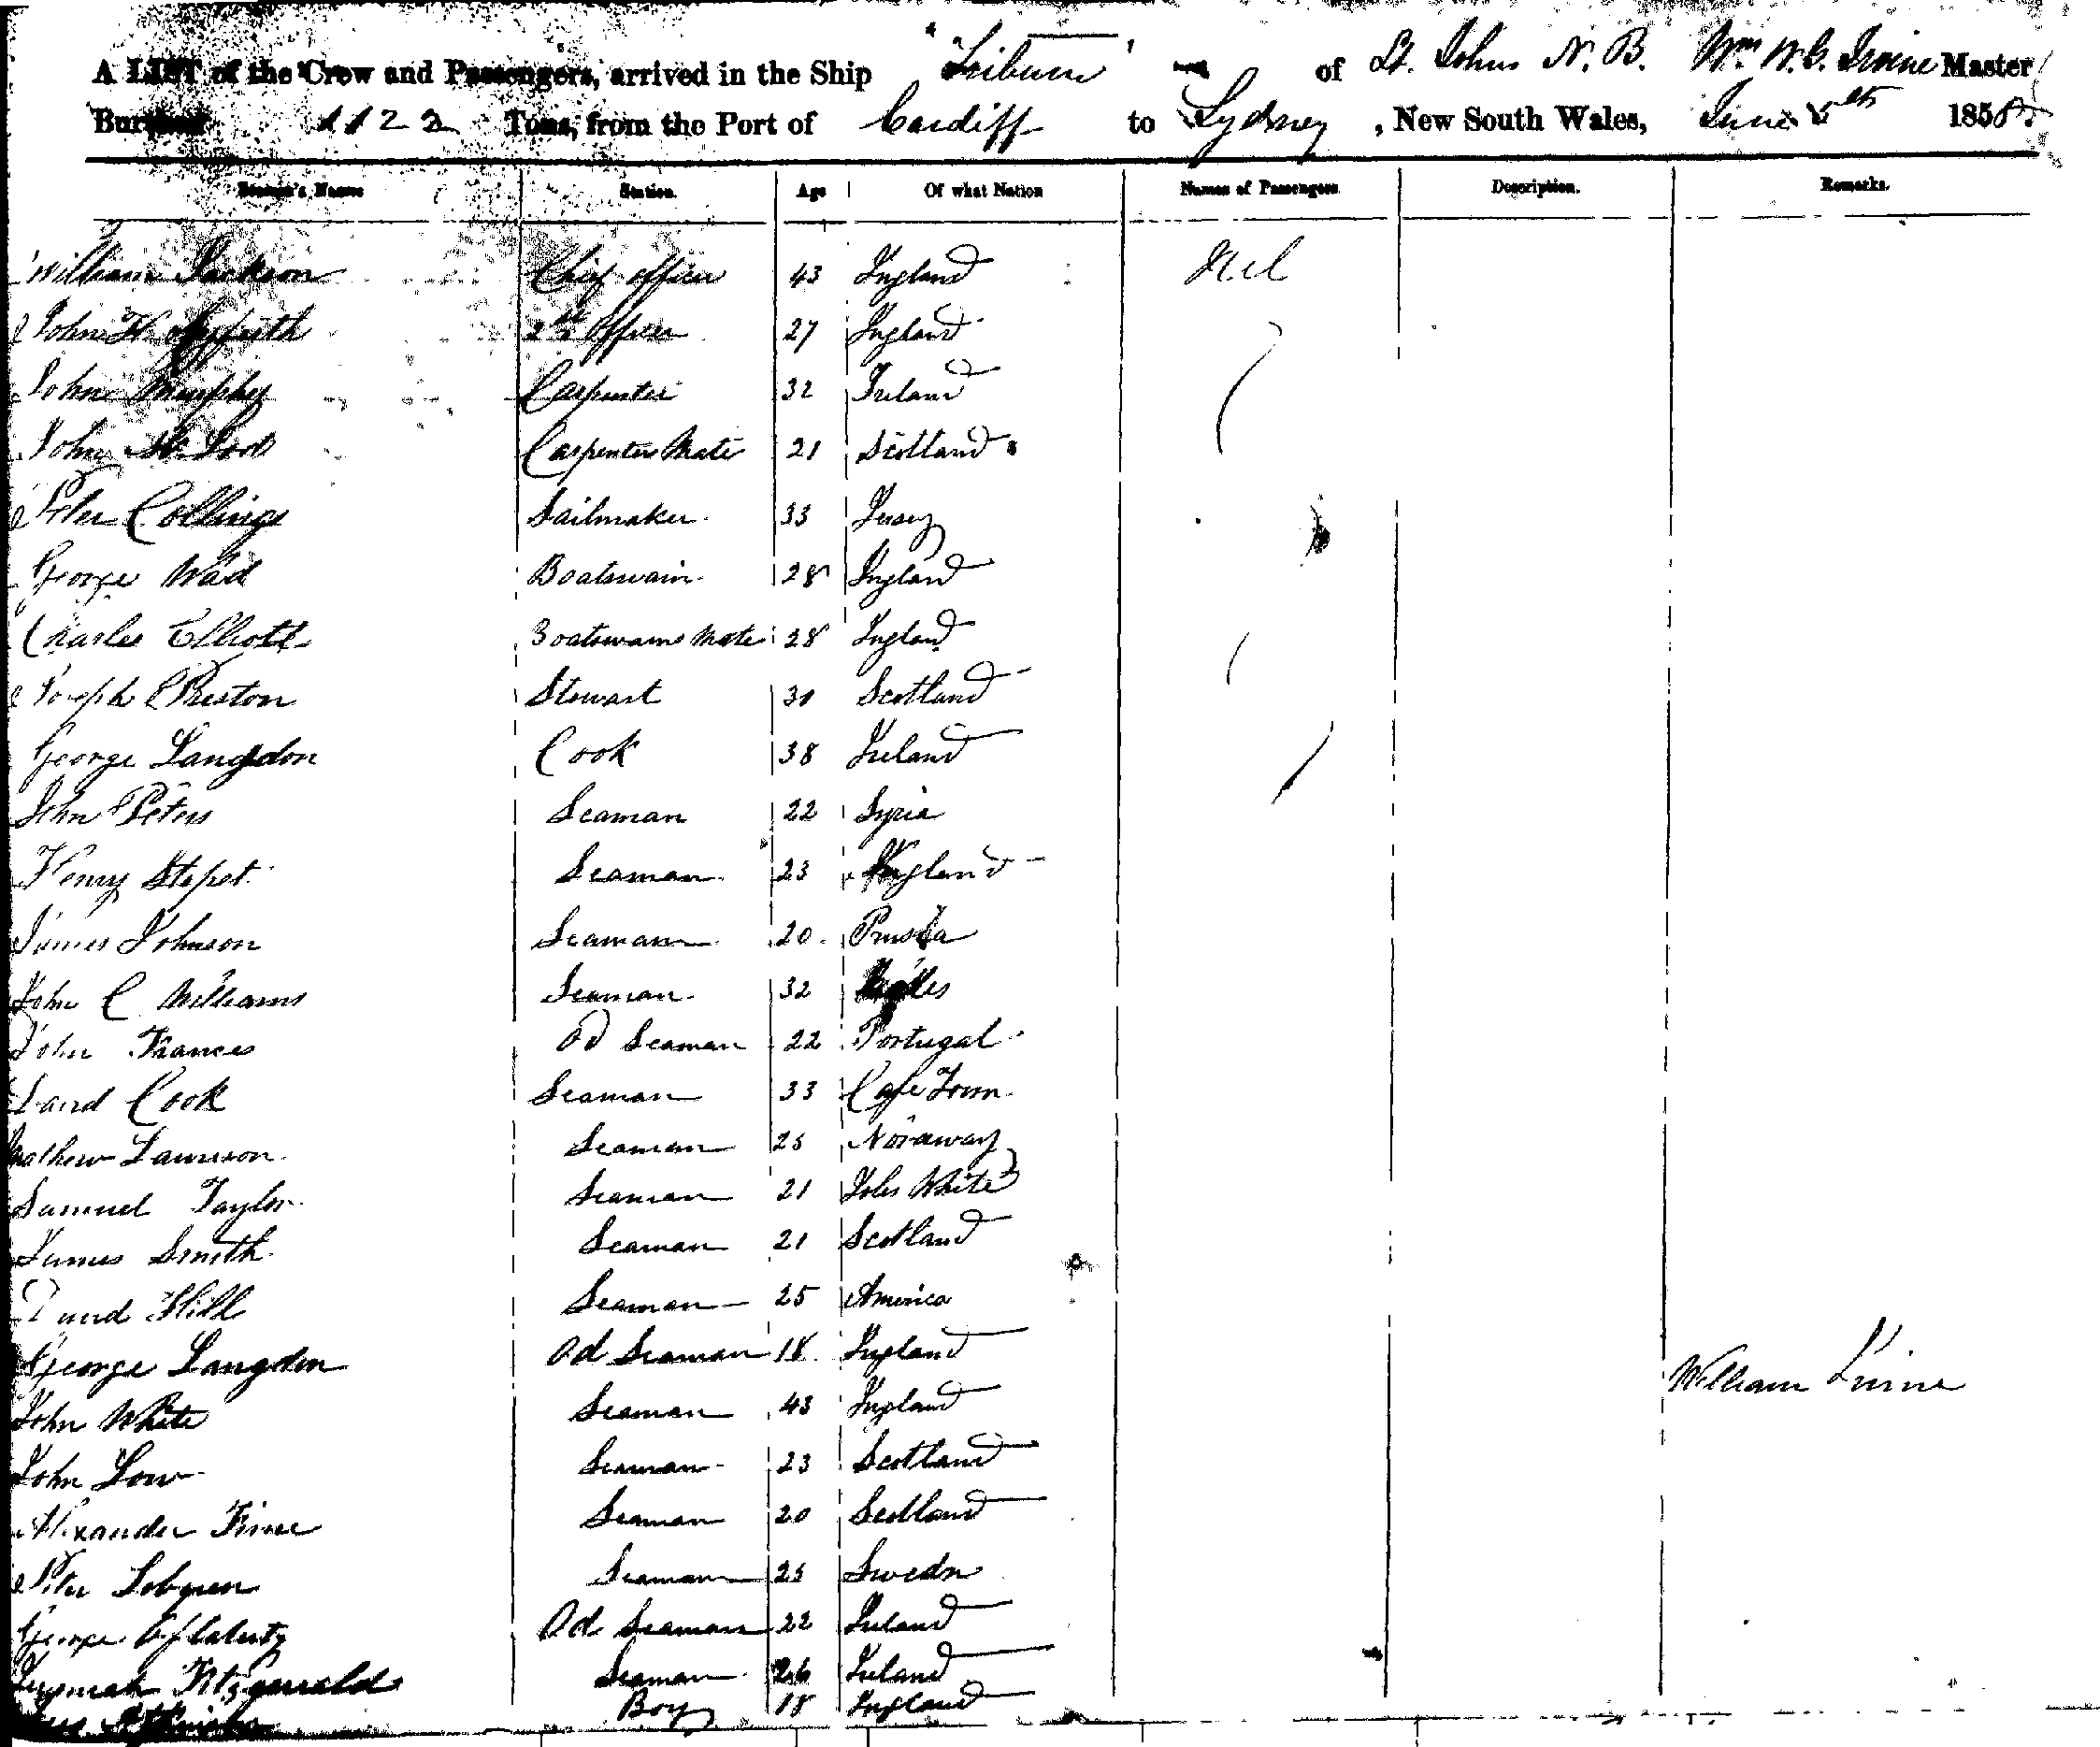 A LIST of the Crew and Passengers, arrived in the Ship "Tribune" of St. Johns N. B. Wm W. G. Irvine Master
Burthen 1122 Tons, from the Port of Cardiff to Sydney, New South Wales, June 5th 1858.
Seaman's Names Station. Age Of what Nation Names of Passengers Description. Remarks.
William Jackson Chief officer 43 England Nil
John H. 2nd Officer 27 England
John Murphy Carpenter 32 Ireland
John Carpenters Mate 21 Scotland
Peter Collings Sailmaker 33 Jersey
George Boatswain 28 England
Charles Elliott Boatswains Mate 28 England
Joseph Preston Stewart 30 Scotland
George Langdon Cook 38 Ireland
John Peters Seaman 22 Syria
Henry Stepet Seaman 23 England
James Johnson Seaman 20 Prussia
John C Williams Seaman 32
John Frances Od Seaman 22 Portugal
David Cook Seaman 33 Cape Town
Mathew Seaman 25 Noraway
Samuel Taylor Seaman 21 White
James Smith Seaman 21 Scotland
David Hill Seaman 25 America
George Langdon Od Seaman 18 England
William Irvine
John White Seaman 43 England
John Low Seaman 23 Scotland
Alexander Seaman 20 Scotland
Peter Seaman 25 Swedn
George Od Seaman 22 Ireland
Jeremiah Fitzgerald Seaman 26 Ireland
Boy 18 England